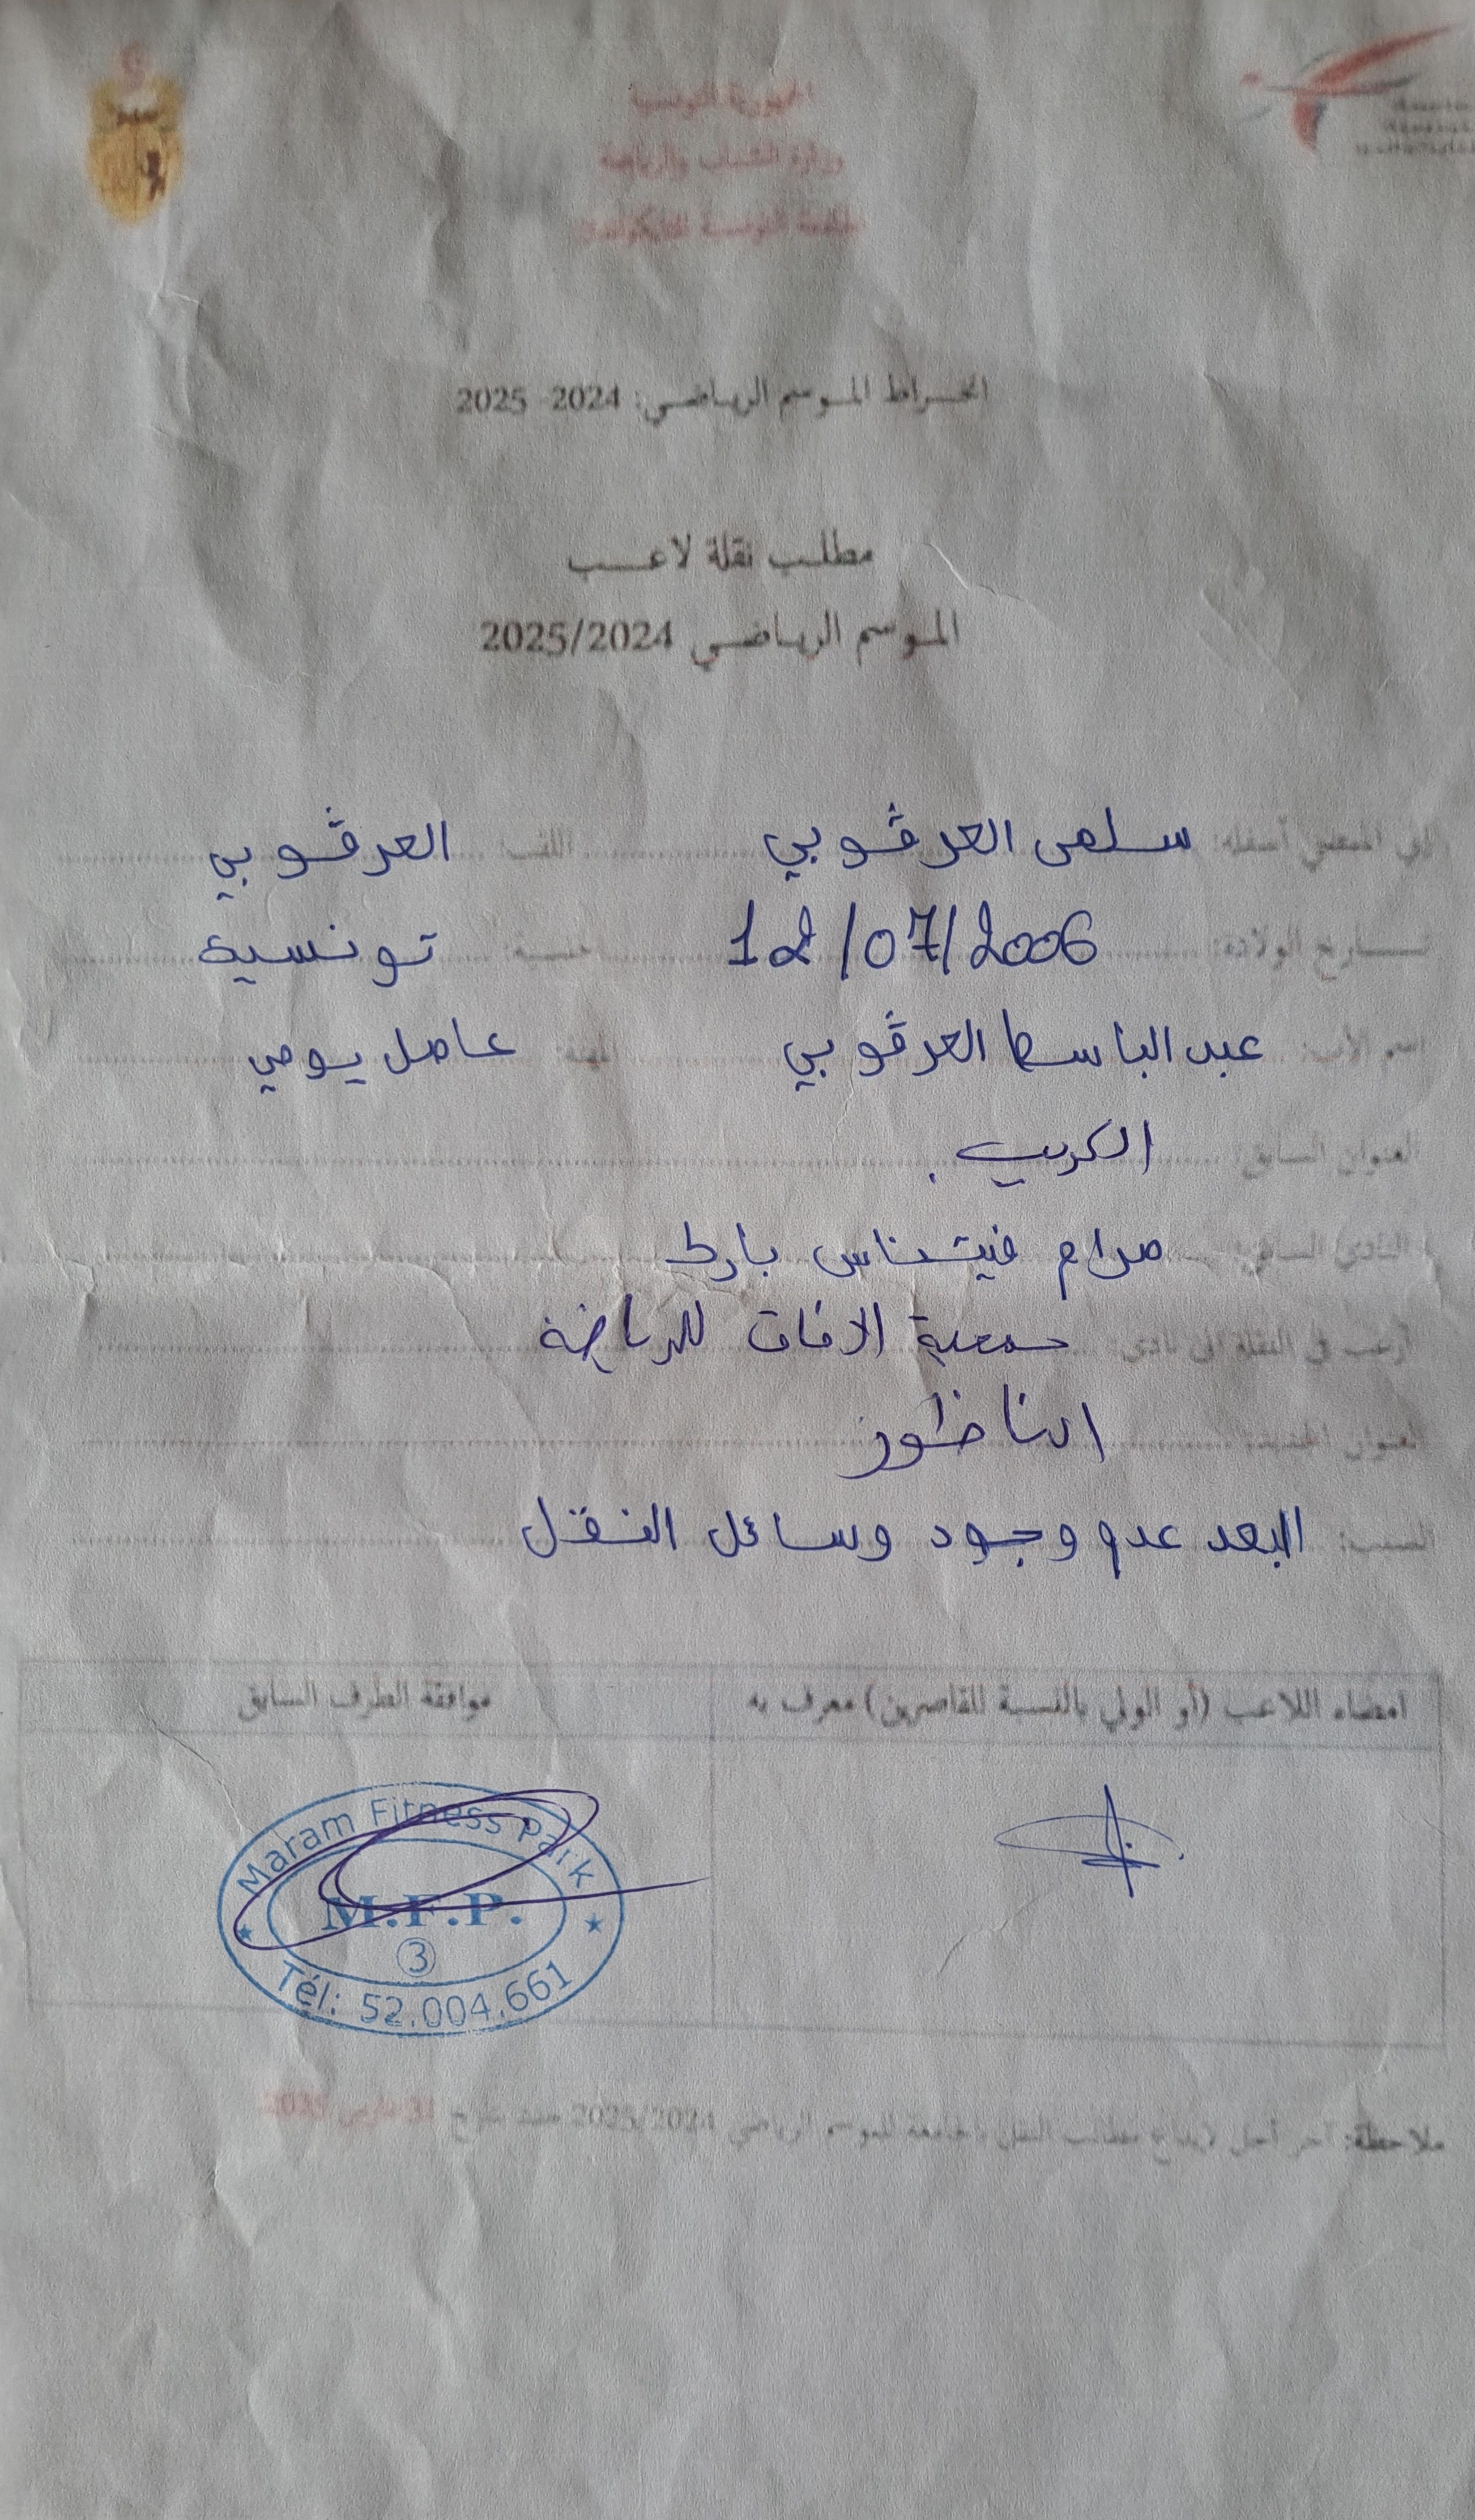 الجمهورية التونسية
وزارة الشباب والرياضة
الجامعة التونسية للتايكواندو
انخراط الموسم الرياضي: 2024- 2025
مطلب نقلة لاعب
الموسم الرياضي 2025/2024
إني الممضي أسفله: سلمى العرڨوبي اللقب: العرڨوبي
تاريخ الولادة: 12/07/2006 جنسية: تونسية
اسم الأب: عبد الباسط العرڨوبي المهنة: عامل يومي
العنوان السابق: الكريب
النادي السابق: مرام فيتناس بارك
أرغب في النقلة الى نادي جمعية الافاق للرياضة
العنوان الجديد: الناظور
السبب: البعد عدم وجود وسائل النقل
امضاء اللاعب (أو الولي بالنسبة للقاصرين) معرف به موافقة الطرف السابق
Maram Fitness Park
M.F.P.
3
Tél: 52.004.661
ملاحظة: آخر أجل لإيداع مطالب النقل بالجامعة للموسم الرياضي 2025/2024 حدد بتاريخ 31 مارس 2025